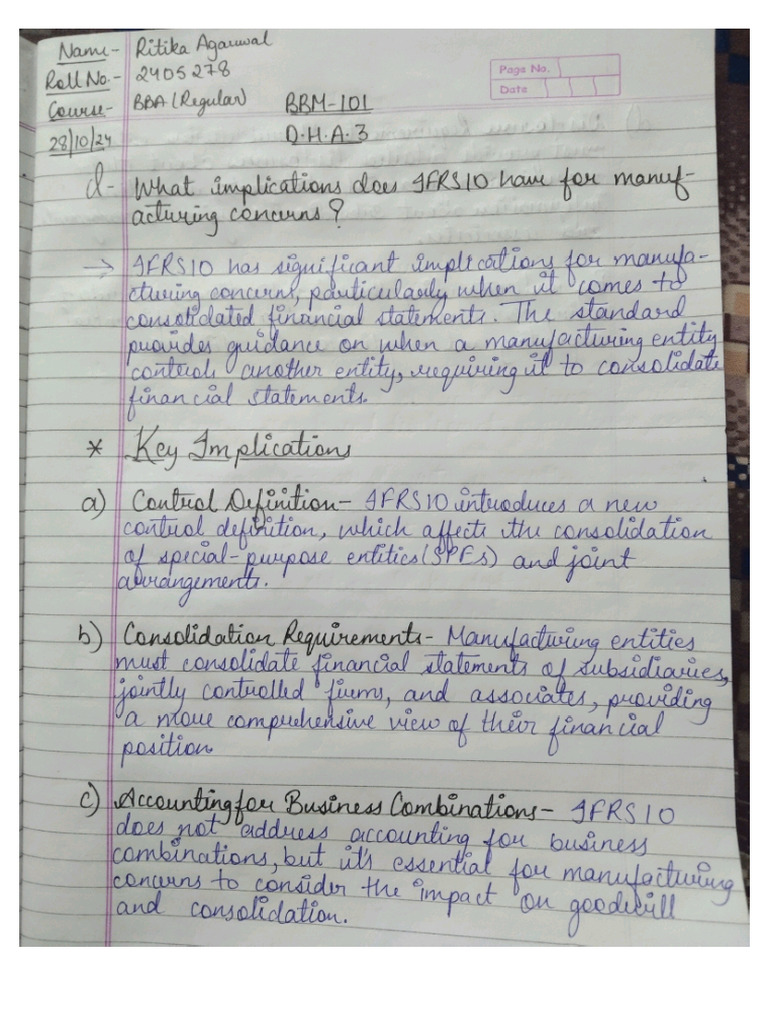 Name- Ritika Agarwal
Roll No.- 2405278
Course- BBA (Regular) BBM-101
28/10/24 D.H.A.3
Page No.
Date
d- What implications does IFRS10 have for manuf-
acturing concerns?
→ IFRS10 has significant implications for manufa-
cturing concerns, particularly when it comes to
consolidated financial statements. The standard
provides guidance on when a manufacturing entity
controls another entity, requiring it to consolidate
financial statements.
* Key Implications
a) Control Definition- IFRS10 introduces a new
control definition, which affects the consolidation
of special-purpose entities (SPEs) and joint
arrangements.
b) Consolidation Requirements- Manufacturing entities
must consolidate financial statements of subsidiaries,
jointly controlled firms, and associates, providing
a more comprehensive view of their financial
position.
c) Accounting for Business Combinations- IFRS10
does not address accounting for business
combinations, but it's essential for manufacturing
concerns to consider the impact on goodwill
and consolidation.